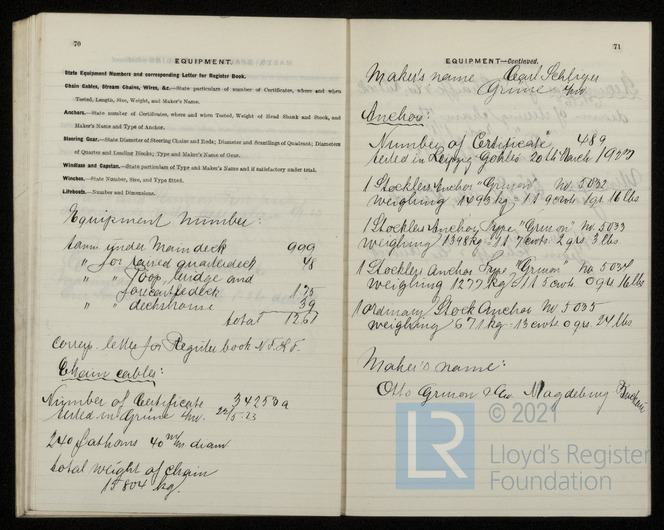 70
EQUIPMENT.
State Equipment Numbers and corresponding Letter for Register Book.
Chain Cables, Stream Chains, Wires, &c.—State particulars of number of Certificates, where and when
Tested, Length, Size, Weight, and Maker's Name.
Anchors.—State number of Certificates, where and when Tested, Weight of Head Shank and Stock, and
Maker's Name and Type of Anchor.
Steering Gear.—State Diameter of Steering Chains and Rods; Diameter and Scantlings of Quadrant; Diameters
of Quarter and Leading Blocks; Type and Maker's Name of Gear.
Windlass and Capstan.—State particulars of Type and Maker's Name and if satisfactory under trial.
Winches.—State Number, Size, and Type fitted.
Lifeboats.—Number and Dimensions.
Equipment Number:
tonn under Maindeck 999
" for raised quarterdeck 48
" " Poop, bridge and
forecastledeck 175
" " deckshouse 39
total 1261
corresp. letter for Register book
Chain cables:
Number of Certificate 34253a
tested in Grüne 22/5.23
240 fathoms 40 m/m diam
total weight of chain
15804 kg.
71
EQUIPMENT—Continued.
Maker's name Carl Schlieper
Grüne
Anchor:
Number of Certificate 489
tested in Leipzig Gohlis 20th March 1923
1 Stockless Anchor "Gruson" No. 5032
weighing 1493 kg = 29 cwts 1 qrs 16 lbs
1 Stockless Anchor Type "Gruson" No. 5033
weighing 1398 kg = 27 cwts 2 qrs 3 lbs
1 Stockless Anchor Type "Gruson" No 5034
weighing 1277 kg = 25 cwts 0 qrs 16 lbs
1 ordinary Stock Anchor No 5035
weighing 671 kg = 13 cwts 0 qrs 24 lbs
Maker's name:
Otto Gruson & Co. Magdeburg Buckau
© 2021
LR
Lloyd's Register
Foundation